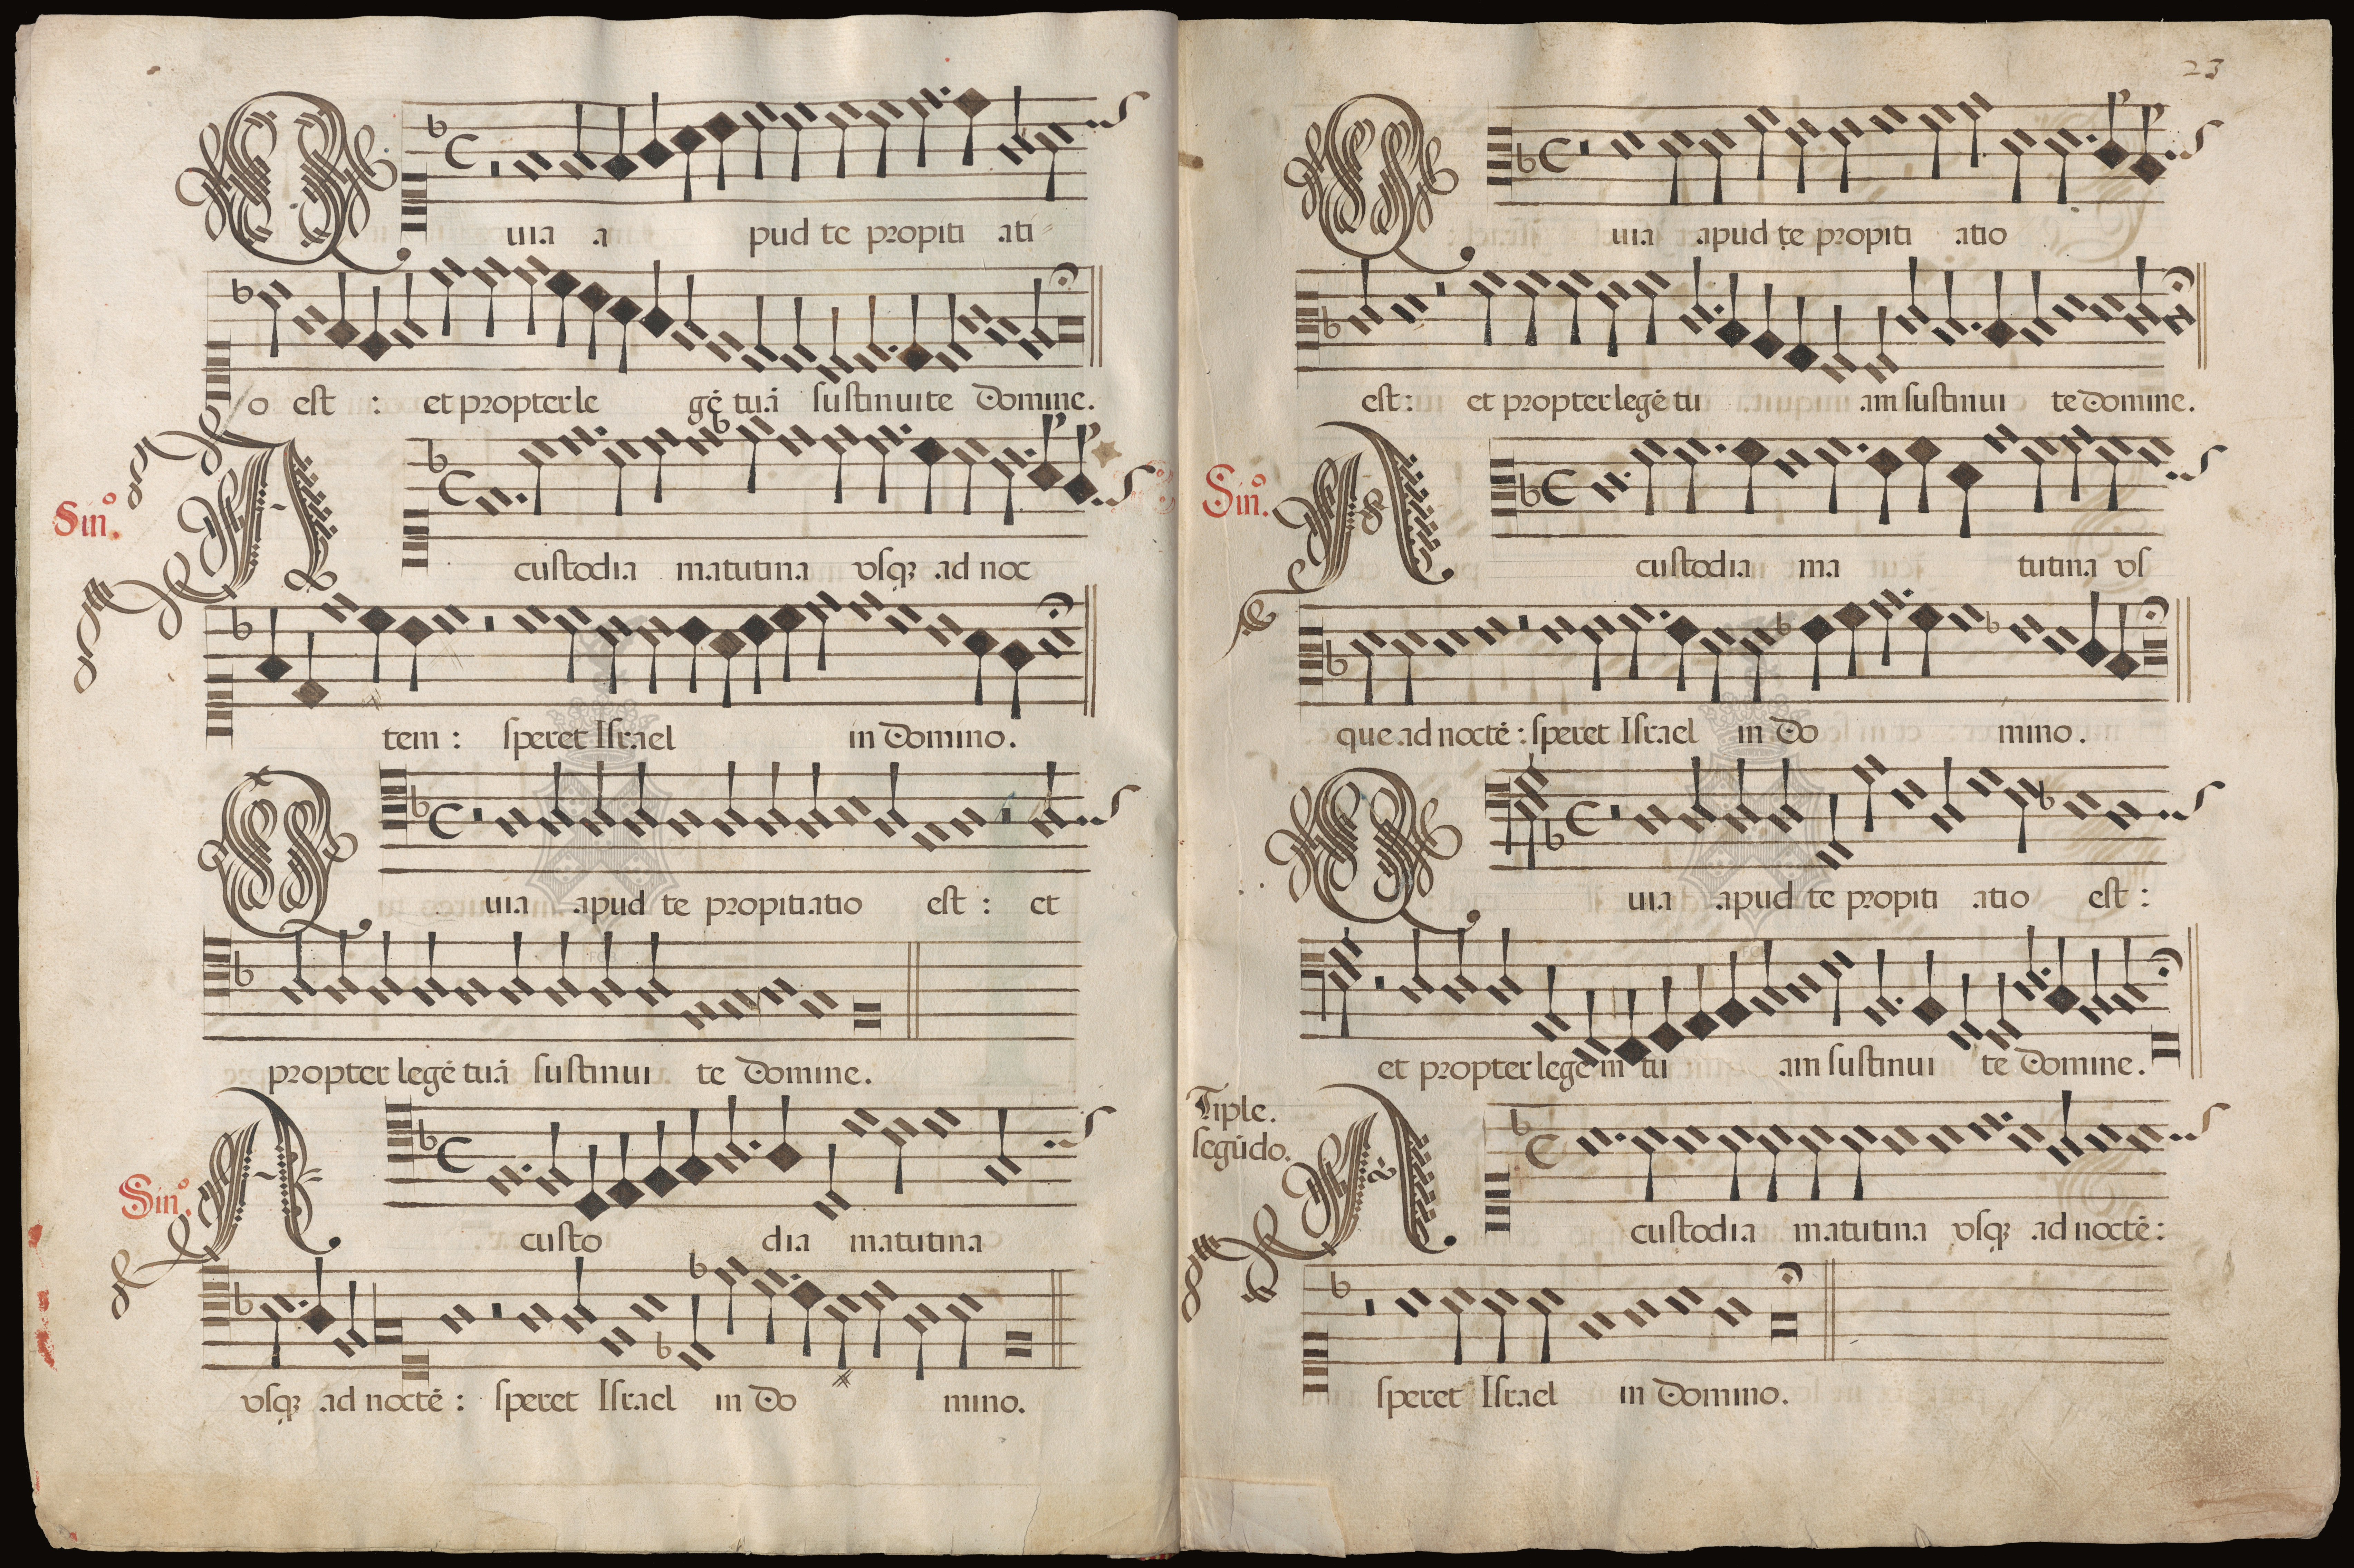 Quia a pud te propiti ati-
o est : et propter le gẽ tuã sustinuit te Domine.
Sinº. A custodia matutina vsqȝ ad noc
tem : speret Israel in Domino.
Quia apud te propitiatio est : et
propter legẽ tuã sustinui te Domine.
Sinº. A custo dia matutina
vsqȝ ad noctẽ : speret Israel in Do mino.
23
Quia apud te propiti atio
est : et propter legẽ tu am sustinui te Domine.
Sinº. A custodia ma tutina vs
que ad noctẽ : speret Israel in Do mino.
Quia apud te propiti atio est :
et propter legem tu am sustinui te Domine.
Tiple.
segũdo.
A custodia matutina vsqȝ ad noctẽ :
speret Israel in Domino.